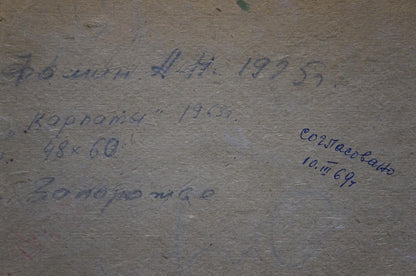 Фомин А.Н. 1925г.
"Карпаты" 1969г.
48 x 60
Запорожье
согласовано
10.III 69г